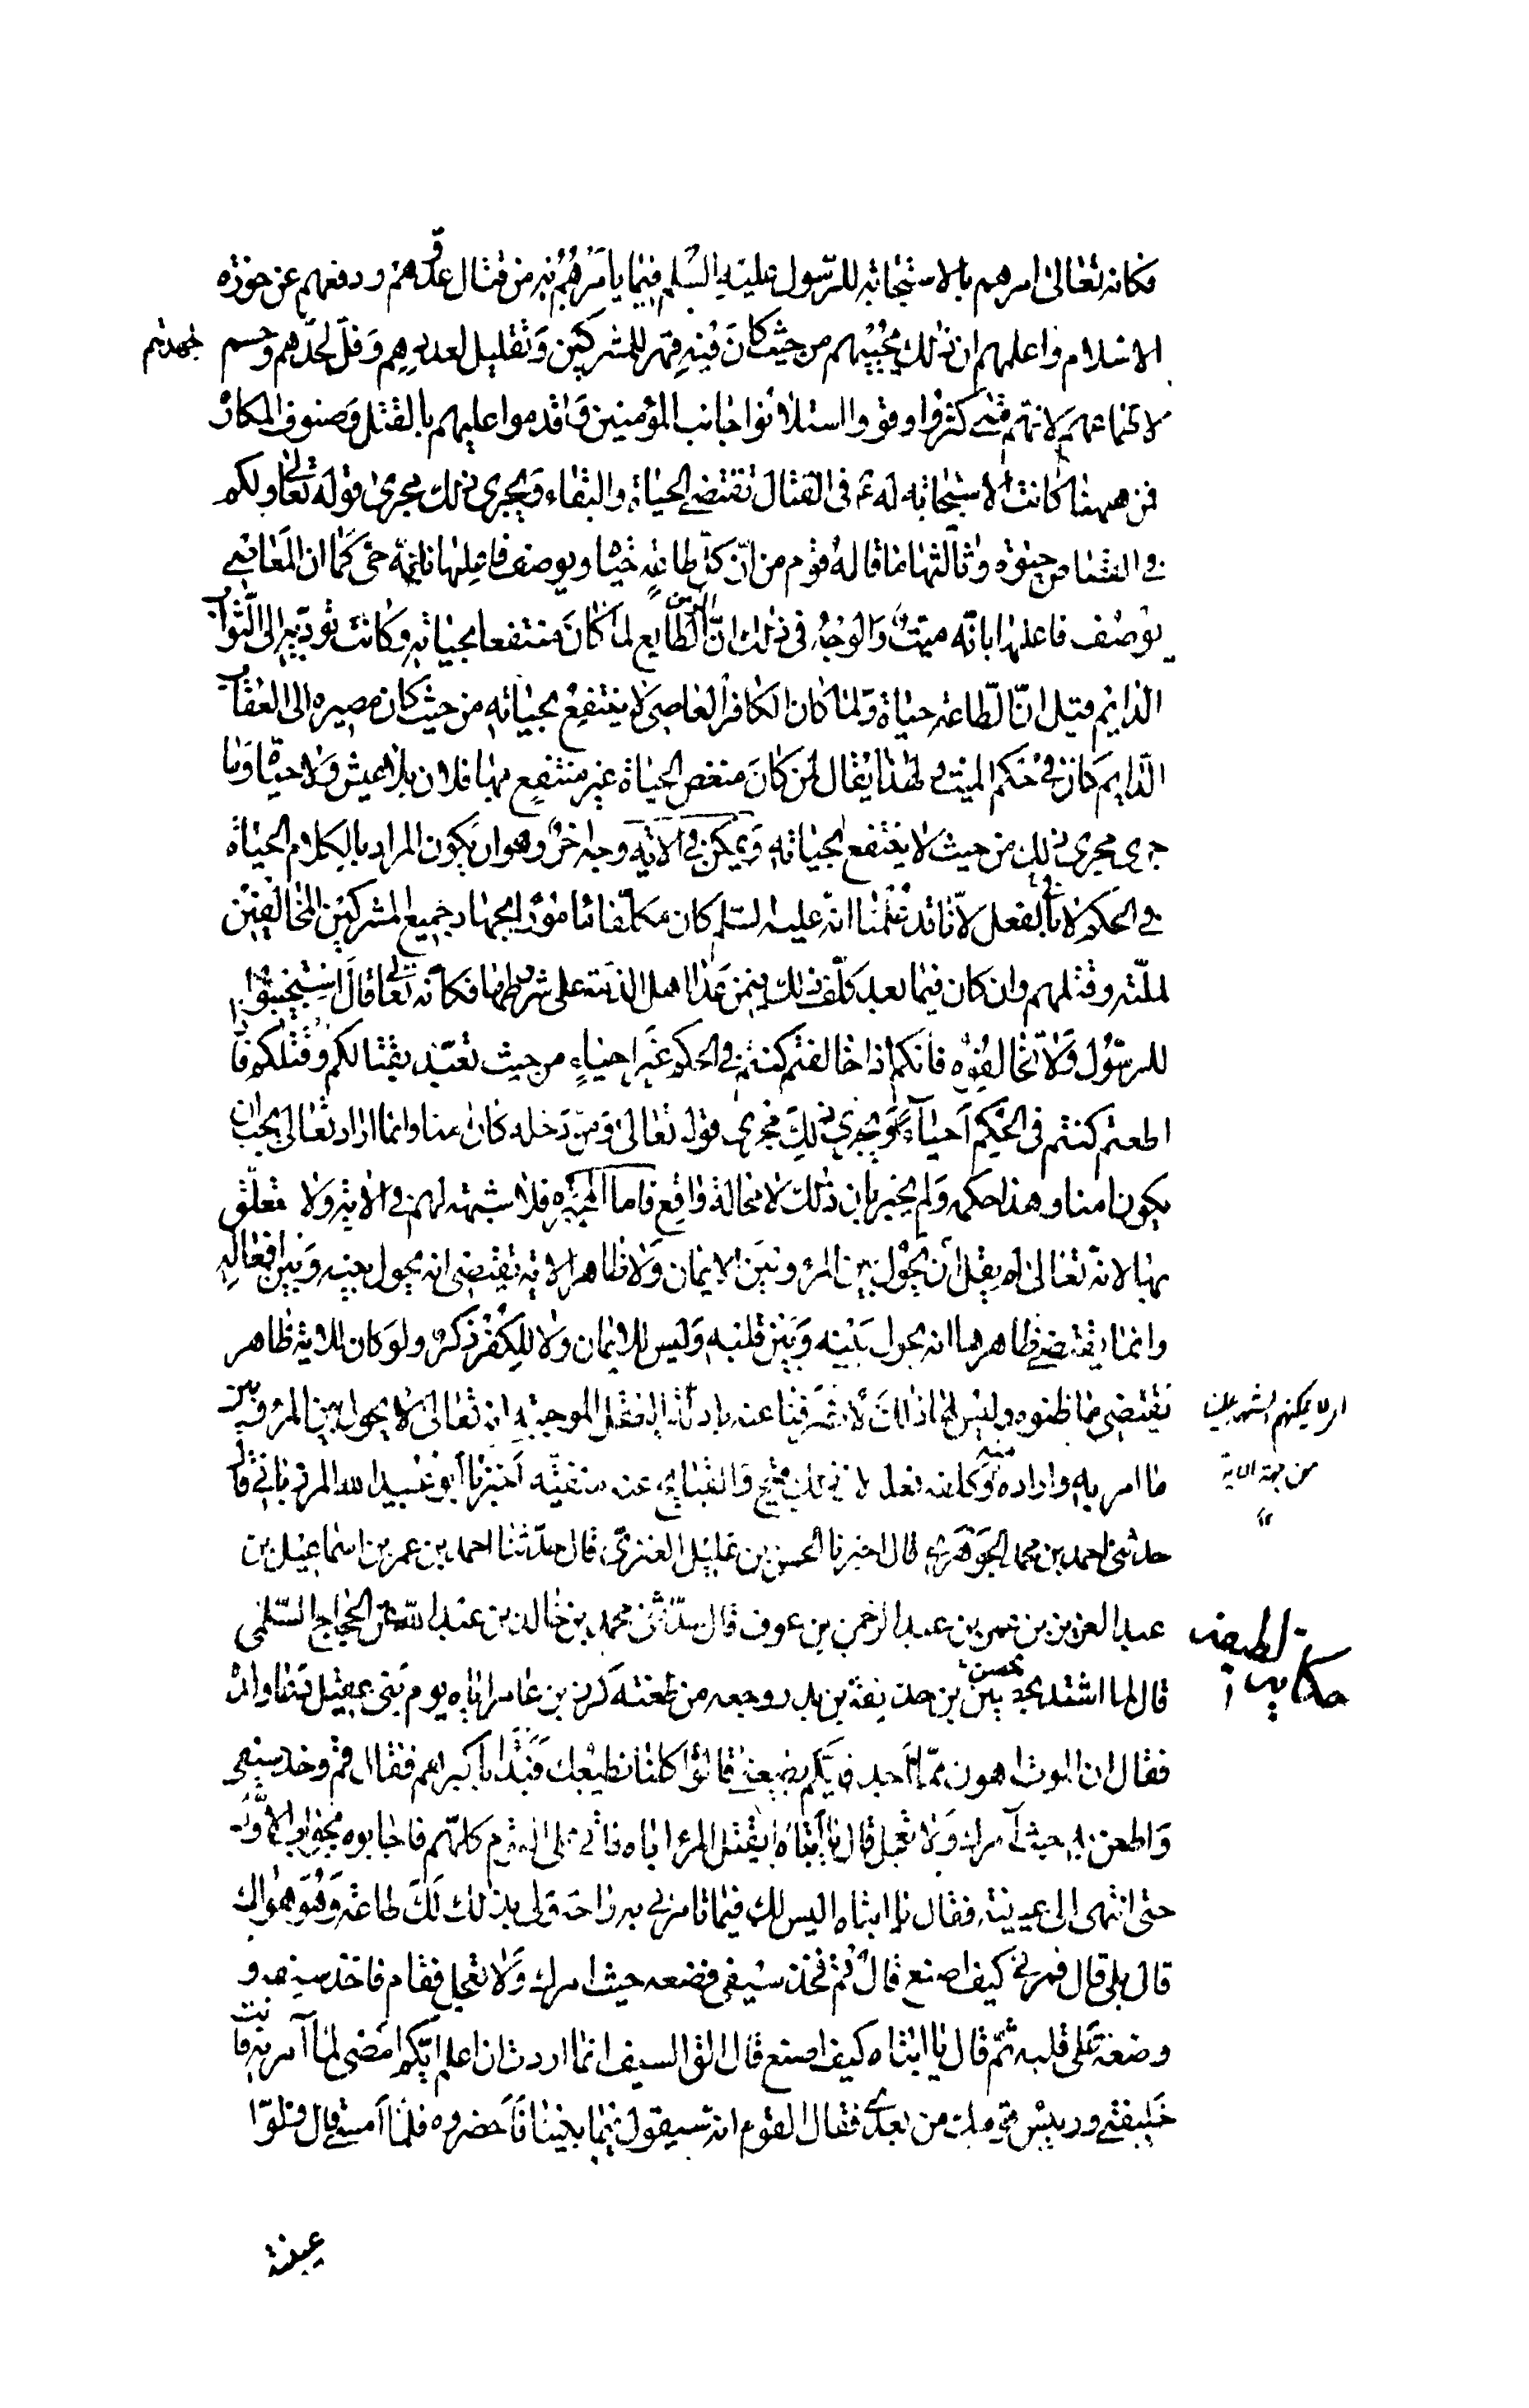 فكانه تعالى امرهم بالاستجابة للرسول عليه السلم فيما يأمرهم به من قتال عدوهم ودفعهم عن حوزة
الاسلام واعلمهم ان ذلك يحييهم من حيث كان فيه قهر للمشركين وتقليل لعددهم وفل لحدهم وحسم
لاطماعهم لانهم متى كثروا وقووا استلانوا جانب المؤمنين واقدموا عليهم بالقتل وصنوف المكاره
فمن ههنا كانت الاستجابة له ع في القتال تقتضى الحياة والبقاء ويجرى ذلك مجرى قوله تعالى ولكم
في القصاص حيوة وثالثها ما قاله قوم من ان كل طاعة حياة ويوصف فاعلها بانه حى كما ان المعاصى
يوصف فاعلها بانه ميت والوجه في ذلك ان الطايع لما كان منتفعا بحياته وكانت تؤديه الى الثواب
الدايم قيل ان الطاعة حياة ولما كان الكافر العاصى لا ينتفع بحياته من حيث كان مصيره الى العقاب
الدايم كان في حكم الميت ولهذا يقال لمن كان منغص الحياة غير منتفع بها فلان بلا عيش ولا حياة وما
جرى مجرى ذلك من حيث لا ينتفع بحياته ويمكن في الآية وجه آخر وهو ان يكون المراد بالكلام الحياة
في الحكم لا في الفعل لانا قد علمنا انه عليه السلم كان مكلفا مامورا بجهاد جميع المشركين المخالفين
لملته وقتلهم وان كان فيما بعد كلف ذلك فيمن عدا اهل الذمة على شروطها فكأنه تعالى قال استجيبوا
للرسول ولا تخالفوه فانكم اذا خالفتم كنتم في الحكم غير احياء من حيث تعبد بقتالكم وقتلكم فاذا
اطعتم كنتم في الحكم احياء ويجرى ذلك مجرى قوله تعالى ومن دخله كان امنا وانما اراد تعالى يجب ان
يكون امنا وهذا حكمه ولم يخبر بان ذلك لا محالة واقع فاما المجبرة فلا شبهة لهم في الاية ولا متعلق
بها لانه تعالى لم يقل ان يحول بين المرء وبين الايمان ولا ظاهر الاية يقتضى انه يحول بينه وبين افعاله
وانما يقتضى ظاهرها انه يحول بينه وبين قلبه وليس للايمان ولا للكفر ذكر ولو كان للاية ظاهر
يقتضى ما ظنوه وليس لها ذلك لانصرفنا عنه بادلة العقل الموجبة انه تعالى لا يحول بين المرء وبين
ما امر به واراده منه وكلفه فعله لان ذلك قبيح والقبايح عنه منفية اخبرنا ابو عبيد الله المرزبانى قال
حدثنى احمد بن محمد الجوهرى قال اخبرنا الحسن بن عليل العنزى قال حدثنا احمد بن عمر بن اسماعيل بن
عبد العزيز بن عمر بن عبد الرحمن بن عوف قال حدثنى محمد بن خالد بن عبد الله عن الحجاج السلمى
قال لما اشتد بحصن بن حذيفة بن بدر وجعه من طعنة كرز بن عامر اياه يوم بنى عقيل دعا ولده
فقال ان الموت اهون مما اجد فايكم يطيعنى قالوا كلنا نطيعك فبدأ باكبرهم فقال قم وخذ سيفى
واطعن به حيث آمرك ولا تعجل قال يا أبتاه ايقتل المرء اباه فاتى على القوم كلهم فاجابوه بجواب الاول
حتى انتهى الى عيينة فقال يا ابتاه اليس لك فيما تامرنى به راحة ولى بذلك لك طاعة وهو هواك
قال بلى قال فمرنى كيف اصنع قال قم فخذ سيفى فضعه حيث امرك ولا تعجل فقام فاخذ سيفه و
وضعه على قلبه ثم قال يا ابتاه كيف اصنع قال الق السيف انما اردت ان اعلم ايكم امضى لما آمر به فانت
خليفتى ورييس قومك من بعدى فقال القوم انه سيقول فيما بيننا فاحضروه فلما امسى قال ولوا
عيينة
جهدهم
ولا يمكنهم
من جهة الاية
حكاية لطيفة